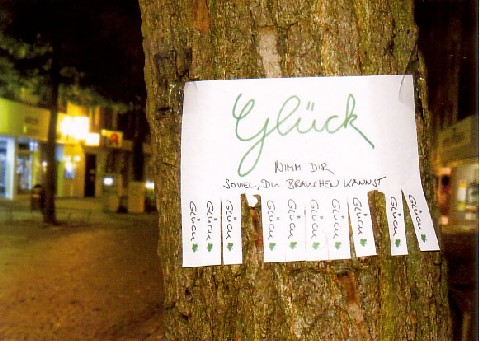 Glück
NIMM DIR
SOVIEL, DU BRAUCHEN KANNST
Glück
Glück
Glück
Glück
Glück
Glück
Glück
Glück
Glück
Glück